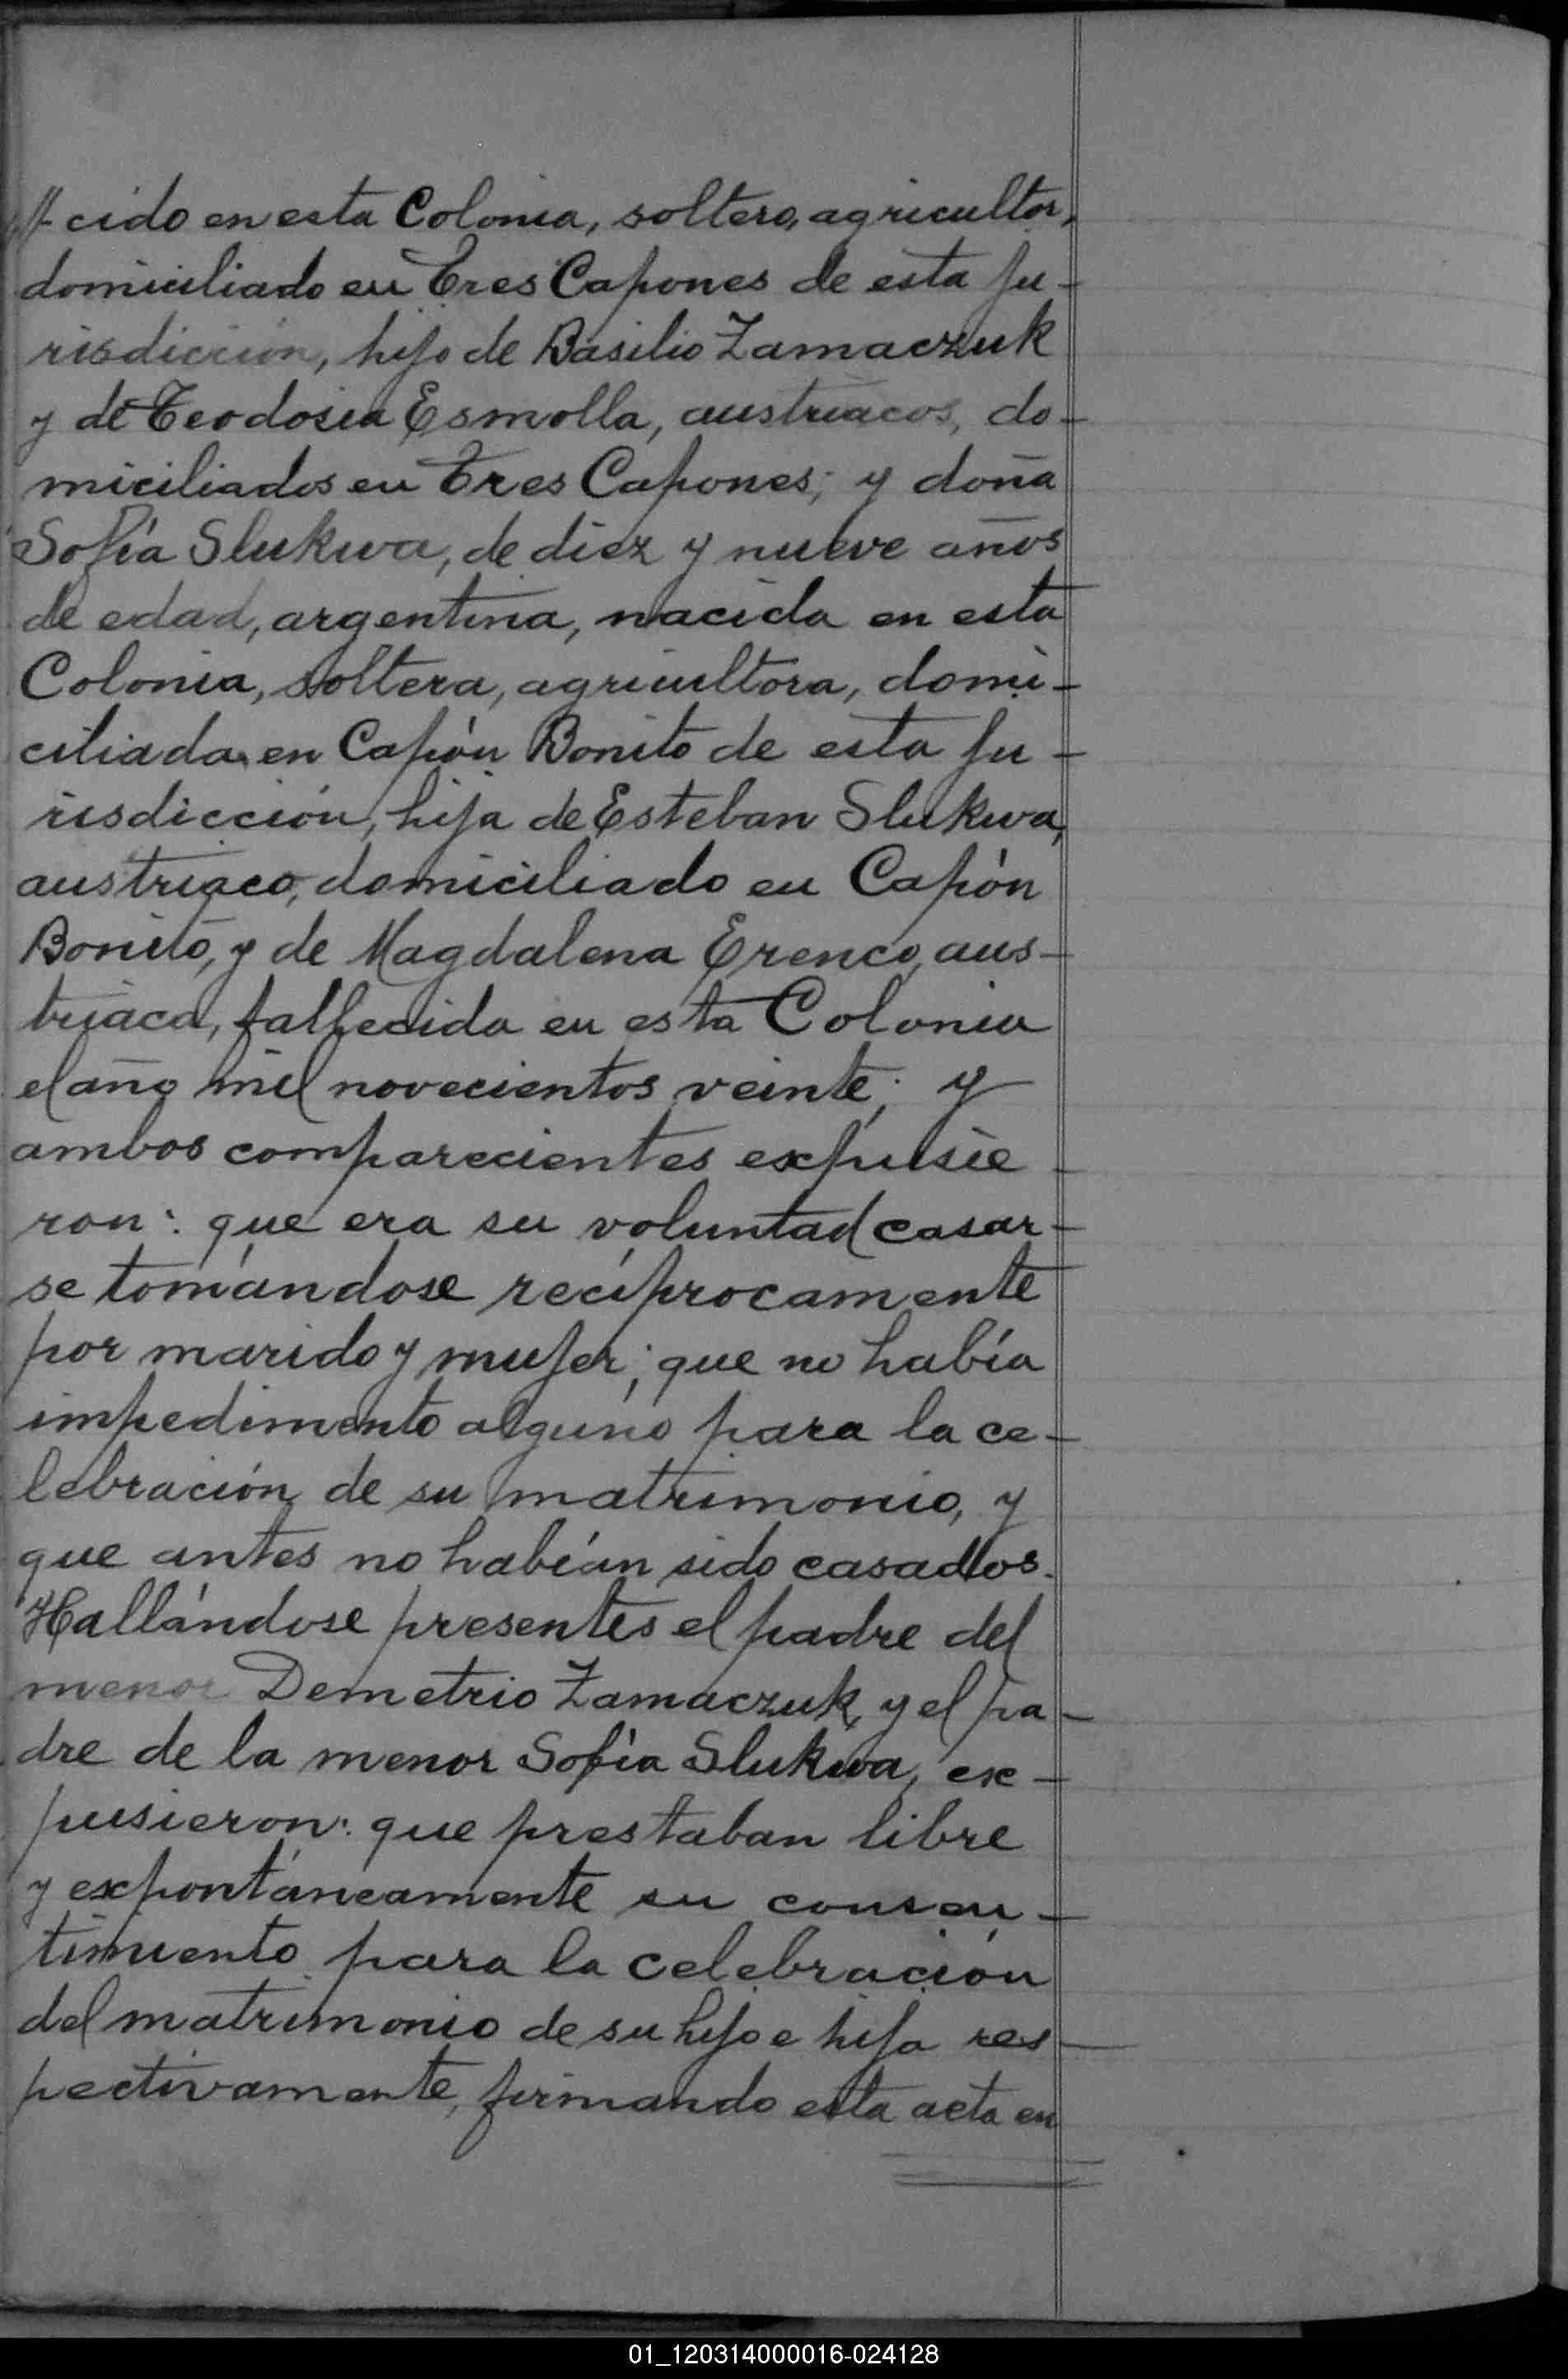 cido en esta Colonia, soltero, agricultor,
domiciliado en Tres Capones de esta ju-
risdicción, hijo de Basilio Zamaczuk
y de Teodosia Esmolla, austríacos, do-
miciliados en Tres Capones; y doña
Sofía Slukwa, de diez y nueve años
de edad, argentina, nacida en esta
Colonia, soltera, agricultora, domi-
ciliada en Capón Bonito de esta ju-
risdicción, hija de Esteban Slukwa,
austriaco, domiciliado en Capón
Bonito, y de Magdalena Erenco, aus-
triaca, fallecida en esta Colonia
el año mil novecientos veinte; y
ambos comparecientes expusie-
ron: que era su voluntad casar-
se tomándose recíprocamente
por marido y mujer; que no había
impedimento alguno para la ce-
lebración de su matrimonio, y
que antes no habían sido casados.
Hallándose presentes el padre del
menor Demetrio Zamaczuk, y el pa-
dre de la menor Sofía Slukwa, ex-
pusieron: que prestaban libre
y expontáneamente su consen-
timiento para la celebración
del matrimonio de su hijo e hija res-
pectivamente, firmando esta acta en
01_120314000016-024128